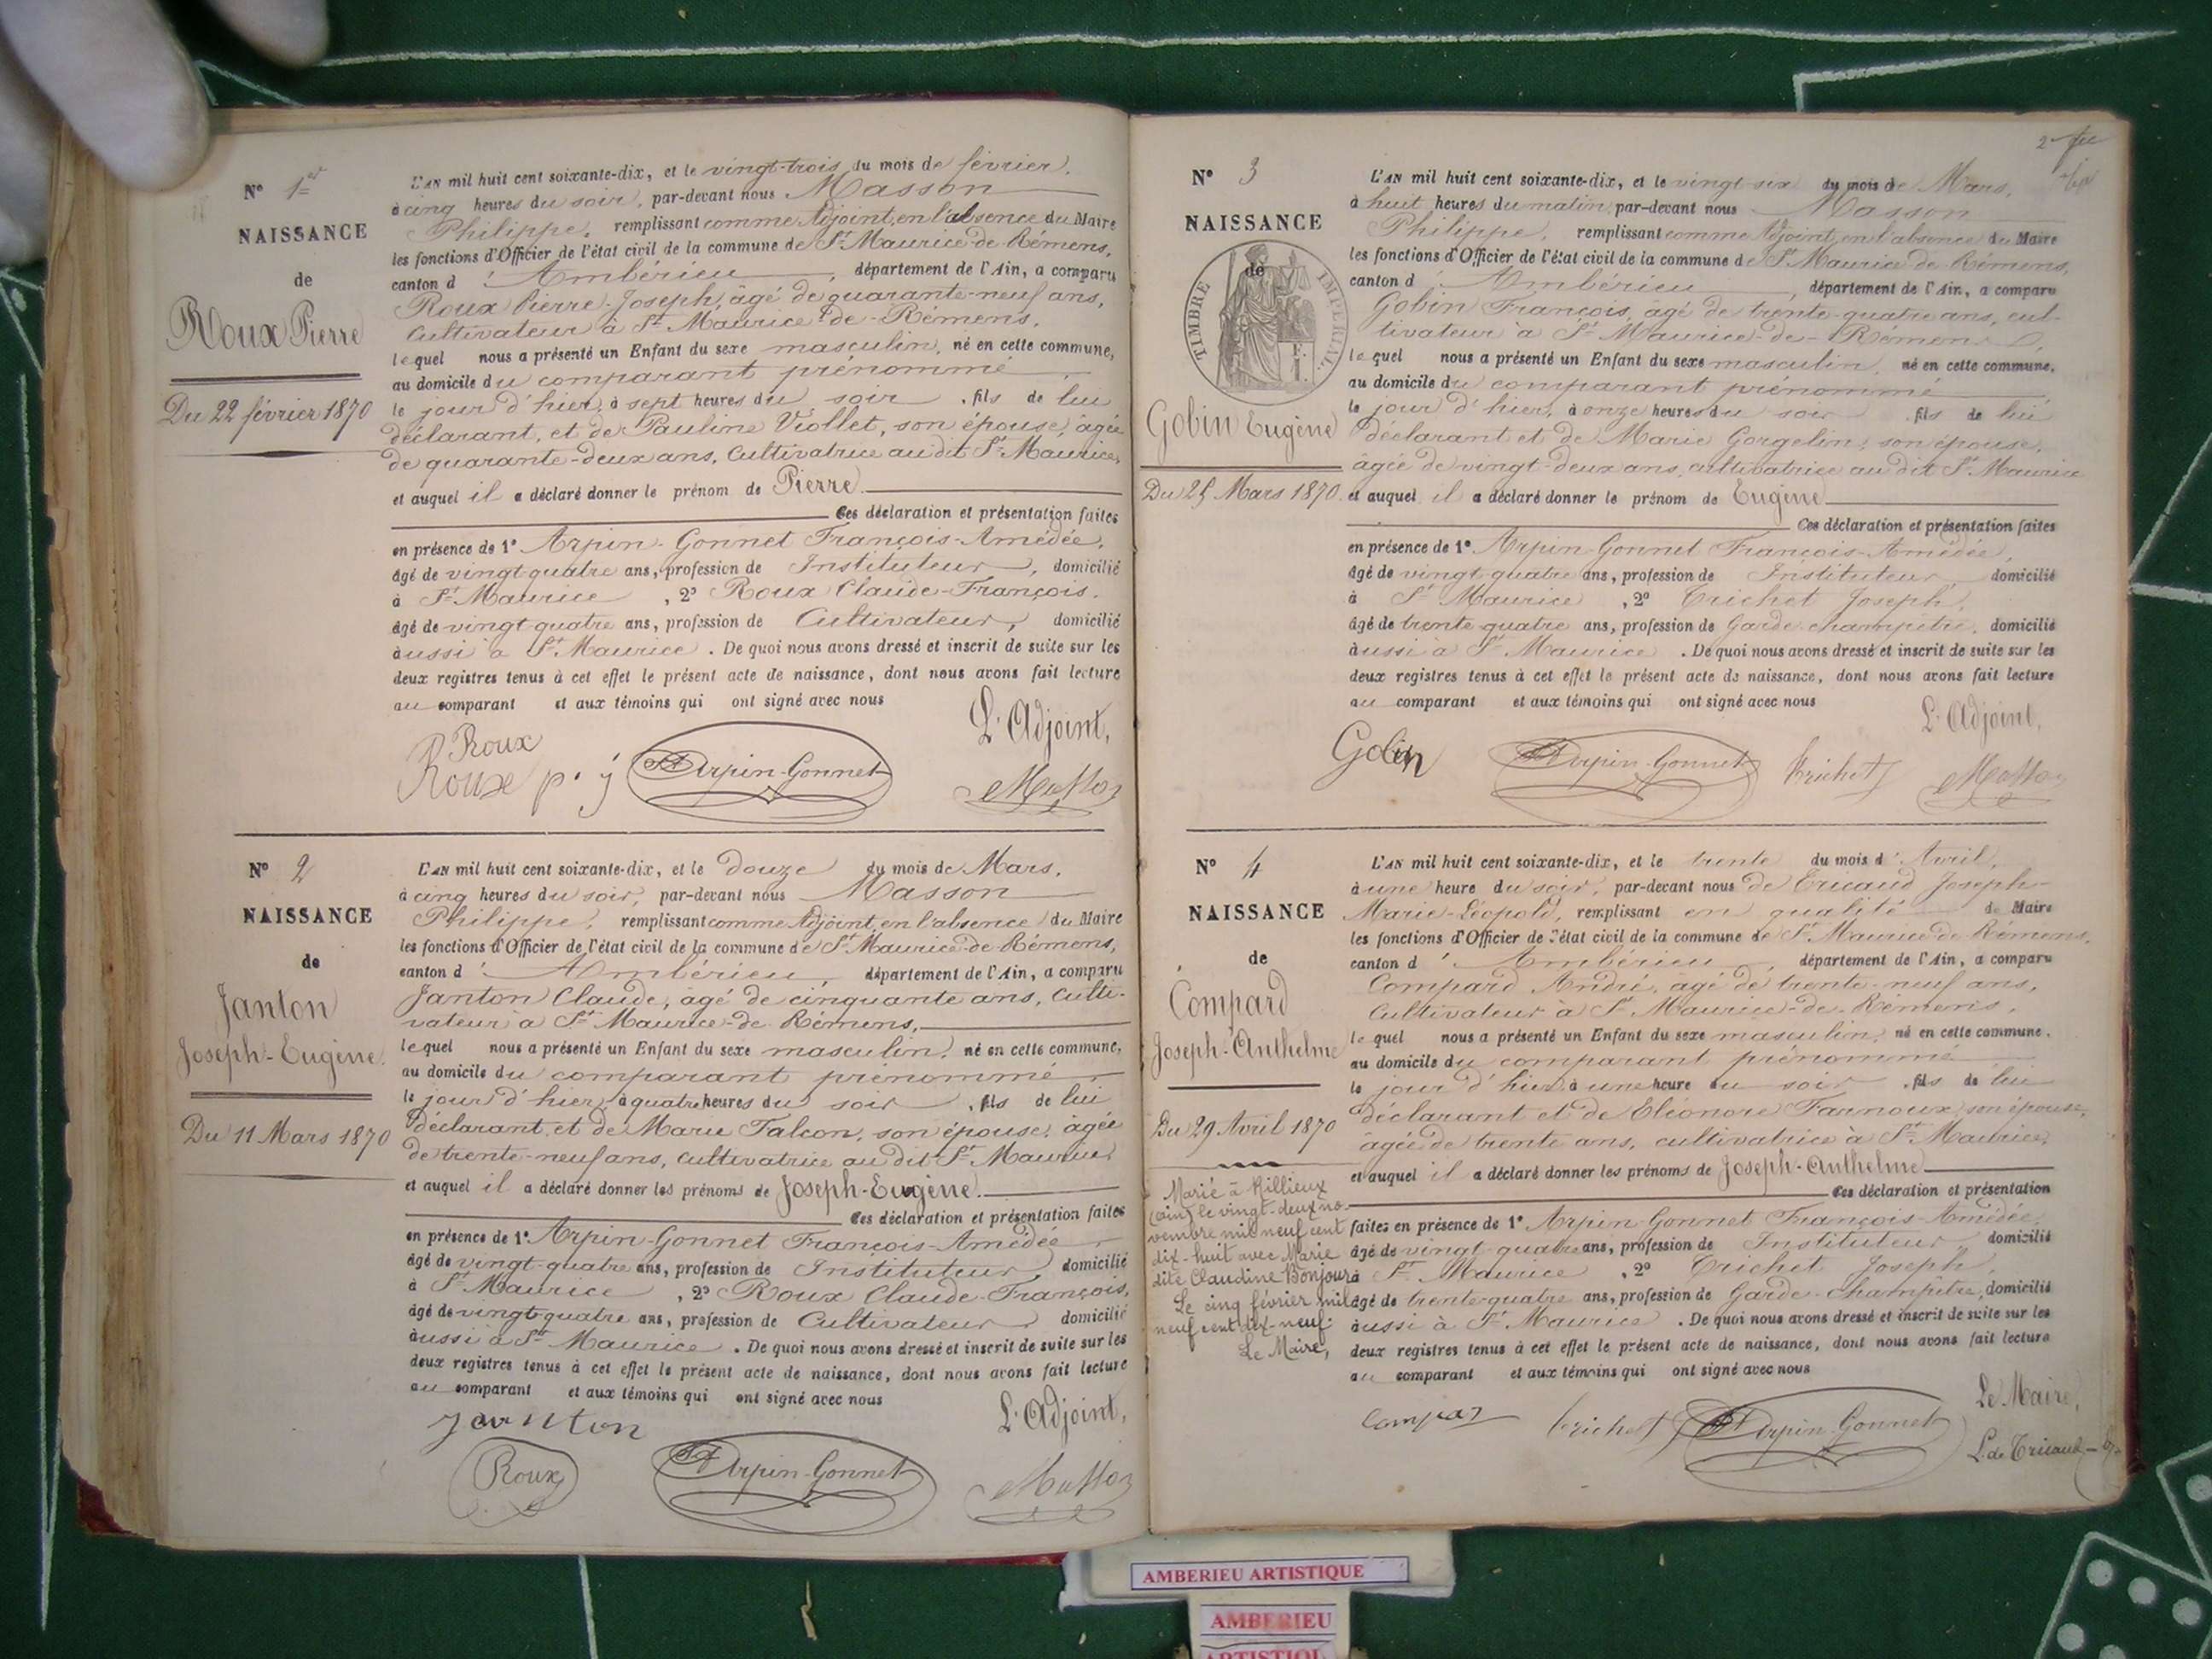 N° 1er
NAISSANCE
de
Roux Pierre
Du 22 février 1870
L'AN mil huit cent soixante-dix, et le vingt-trois du mois de février,
à cinq heures du soir, par-devant nous Masson
Philippe, remplissant comme Adjoint, en l'absence du Maire
les fonctions d'Officier de l'état civil de la commune de St Maurice-de-Rémens,
canton d'Ambérieu, département de l'Ain, a comparu
Roux Pierre-Joseph, âgé de quarante-neuf ans,
Cultivateur à St Maurice-de-Rémens,
lequel nous a présenté un Enfant du sexe masculin, né en cette commune,
au domicile du comparant prénommé
le jour d'hier, à sept heures du soir, fils de lui
déclarant, et de Pauline Viollet, son épouse, âgée
de quarante-deux ans, Cultivatrice au dit St Maurice,
et auquel il a déclaré donner le prénom de Pierre.
Ces déclaration et présentation faites
en présence de 1° Arpin-Gonnet François-Amédée,
âgé de vingt-quatre ans, profession de Instituteur, domicilié
à St Maurice, 2° Roux Claude-François,
âgé de vingt-quatre ans, profession de Cultivateur, domicilié
aussi à St Maurice. De quoi nous avons dressé et inscrit de suite sur les
deux registres tenus à cet effet le présent acte de naissance, dont nous avons fait lecture
au comparant et aux témoins qui ont signé avec nous
L'Adjoint,
Roux
Roux p. j Arpin-Gonnet Masson
N° 2
NAISSANCE
de
Janton
Joseph-Eugène.
Du 11 Mars 1870
L'AN mil huit cent soixante-dix, et le douze du mois de Mars,
à cinq heures du soir, par-devant nous Masson
Philippe, remplissant comme Adjoint, en l'absence du Maire
les fonctions d'Officier de l'état civil de la commune de St Maurice-de-Rémens,
canton d'Ambérieu, département de l'Ain, a comparu
Janton Claude, âgé de cinquante ans, culti-
vateur à St Maurice-de-Rémens,
lequel nous a présenté un Enfant du sexe masculin, né en cette commune,
au domicile du comparant prénommé
le jour d'hier, à quatre heures du soir, fils de lui
déclarant, et de Marie Falcon, son épouse, âgée
de trente-neuf ans, cultivatrice au dit St Maurice
et auquel il a déclaré donner les prénoms de Joseph-Eugène.
Ces déclaration et présentation faites
en présence de 1° Arpin-Gonnet François-Amédée
âgé de vingt-quatre ans, profession de Instituteur, domicilié
à St Maurice, 2° Roux Claude-François,
âgé de vingt-quatre ans, profession de Cultivateur, domicilié
aussi à St Maurice. De quoi nous avons dressé et inscrit de suite sur les
deux registres tenus à cet effet le présent acte de naissance, dont nous avons fait lecture
au comparant et aux témoins qui ont signé avec nous
L'Adjoint,
Janton
Roux Arpin-Gonnet Masson
2
N° 3
NAISSANCE
de
TIMBRE IMPERIAL
Gobin Eugène
Du 25 Mars 1870.
L'AN mil huit cent soixante-dix, et le vingt-six du mois de Mars,
à huit heures du matin, par-devant nous Masson
Philippe, remplissant comme Adjoint, en l'absence du Maire
les fonctions d'Officier de l'état civil de la commune de St Maurice-de-Rémens,
canton d'Ambérieu, département de l'Ain, a comparu
Gobin François, âgé de trente-quatre ans, cul-
tivateur à St Maurice-de-Rémens,
lequel nous a présenté un Enfant du sexe masculin, né en cette commune,
au domicile du comparant prénommé
le jour d'hier, à onze heures du soir, fils de lui
déclarant et de Marie Gorgelin, son épouse,
âgée de vingt-deux ans, cultivatrice au dit St Maurice
et auquel il a déclaré donner le prénom de Eugène
Ces déclaration et présentation faites
en présence de 1° Arpin-Gonnet François-Amédée,
âgé de vingt-quatre ans, profession de Instituteur, domicilié
à St Maurice, 2° Trichet Joseph,
âgé de trente-quatre ans, profession de Garde-champêtre, domicilié
aussi à St Maurice. De quoi nous avons dressé et inscrit de suite sur les
deux registres tenus à cet effet le présent acte de naissance, dont nous avons fait lecture
au comparant et aux témoins qui ont signé avec nous
L'Adjoint,
Gobin Arpin-Gonnet Trichet Masson
N° 4
NAISSANCE
de
Compard
Joseph-Anthelme
Du 29 Avril 1870
Marié à Rillieux
(Ain) le vingt-deux no-
vembre mil neuf cent
dix-huit avec Marie
dite Claudine Bonjour
Le cinq février mil
neuf cent dix-neuf.
Le Maire,
L'AN mil huit cent soixante-dix, et le trente du mois d'Avril,
à une heure du soir, par-devant nous de Tricaud Joseph-
Marie-Léopold, remplissant en qualité de Maire
les fonctions d'Officier de l'état civil de la commune de St Maurice-de-Rémens,
canton d'Ambérieu, département de l'Ain, a comparu
Compard André, âgé de trente-neuf ans,
Cultivateur à St Maurice-de-Rémens,
lequel nous a présenté un Enfant du sexe masculin, né en cette commune,
au domicile du comparant prénommé
le jour d'hier à une heure du soir, fils de lui
déclarant et de Eléonore Farnoux, son épouse,
âgée de trente ans, cultivatrice à St Maurice,
et auquel il a déclaré donner les prénoms de Joseph-Anthelme
Ces déclaration et présentation
faites en présence de 1° Arpin-Gonnet François-Amédée,
âgé de vingt-quatre ans, profession de Instituteur, domicilié
à St Maurice, 2° Trichet Joseph,
âgé de trente-quatre ans, profession de Garde-Champêtre, domicilié
aussi à St Maurice. De quoi nous avons dressé et inscrit de suite sur les
deux registres tenus à cet effet le présent acte de naissance, dont nous avons fait lecture
au comparant et aux témoins qui ont signé avec nous
Le Maire,
Compar Trichet Arpin-Gonnet L. de Tricaud
AMBERIEU ARTISTIQUE
AMBERIEU
ARTISTIQUE